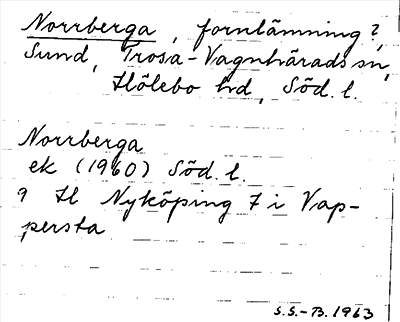 Norrberga, fornlämning?,
Sund, Trosa-Vagnhärads sn,
Hölebo hd, Söd. l.
Norrberga
ek (1960) Söd. l.
9 H Nyköping 7 i Vap-
persta
S.S.-B. 1963